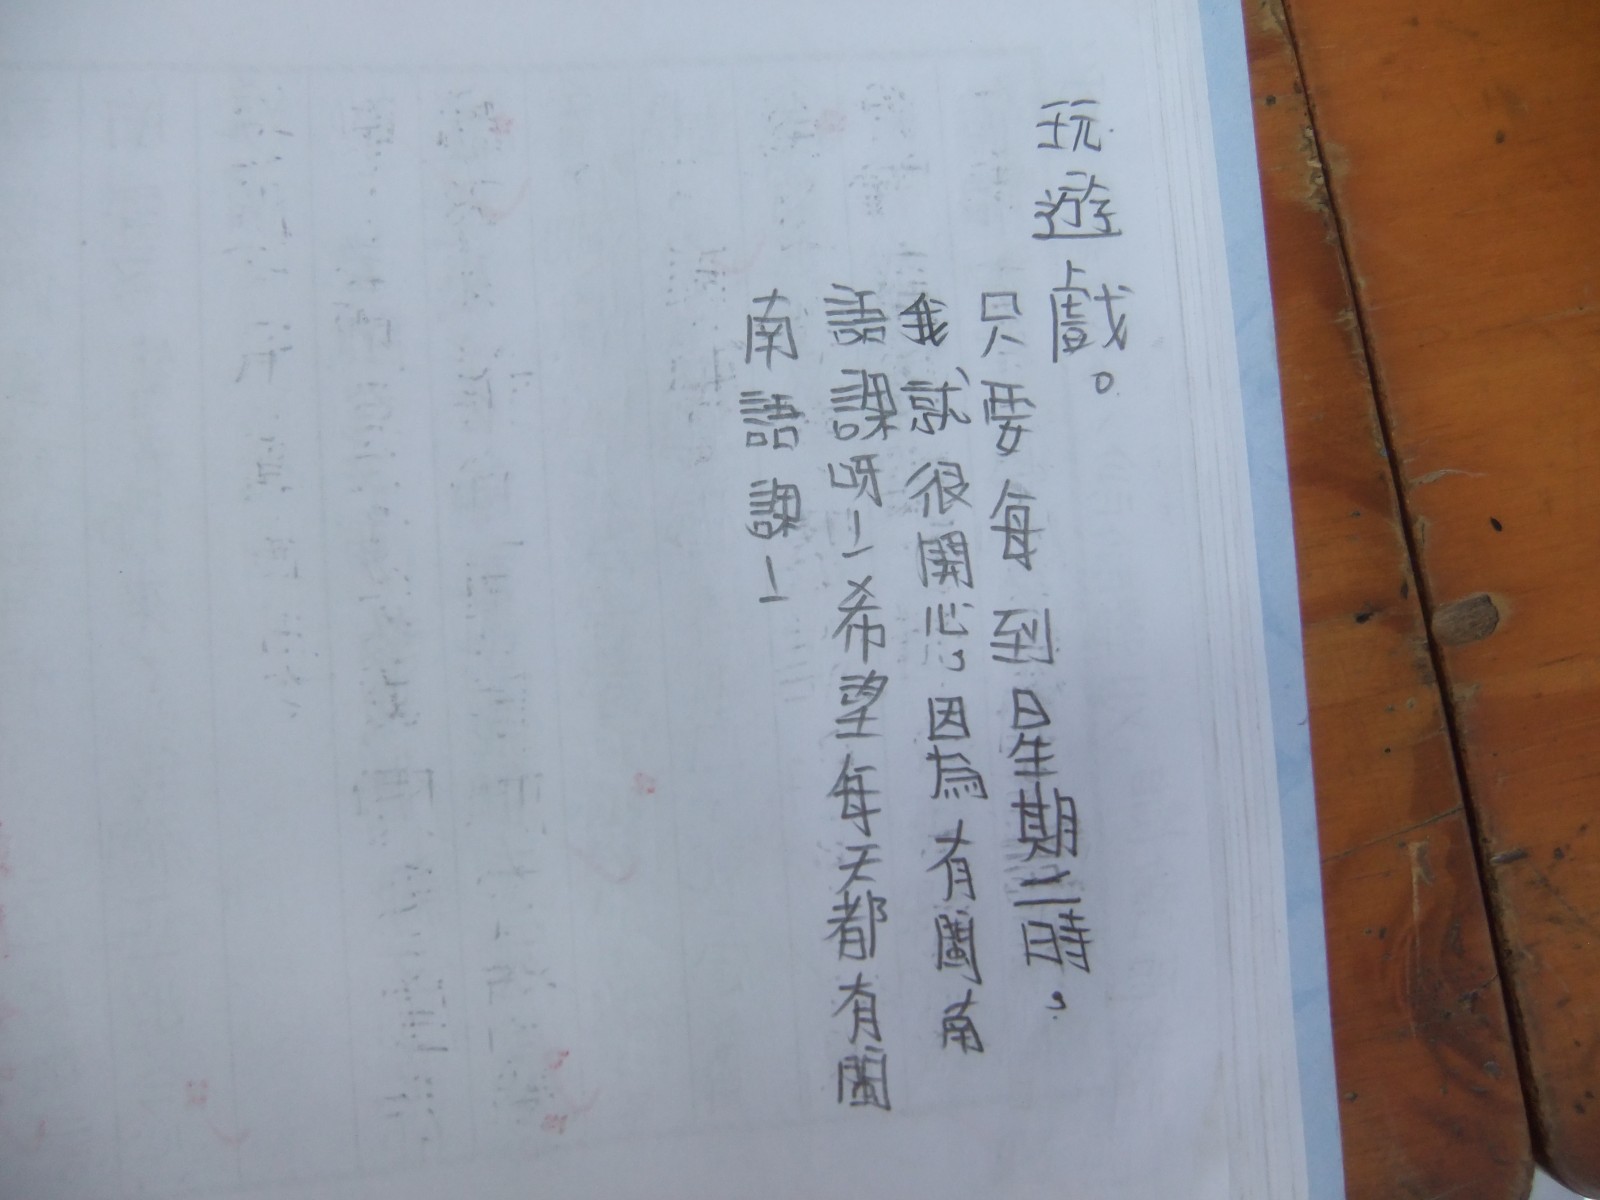 玩遊戲。
只要每到星期二時，
我就很開心，因為有閩南
語課呀！希望每天都有閩
南語課！